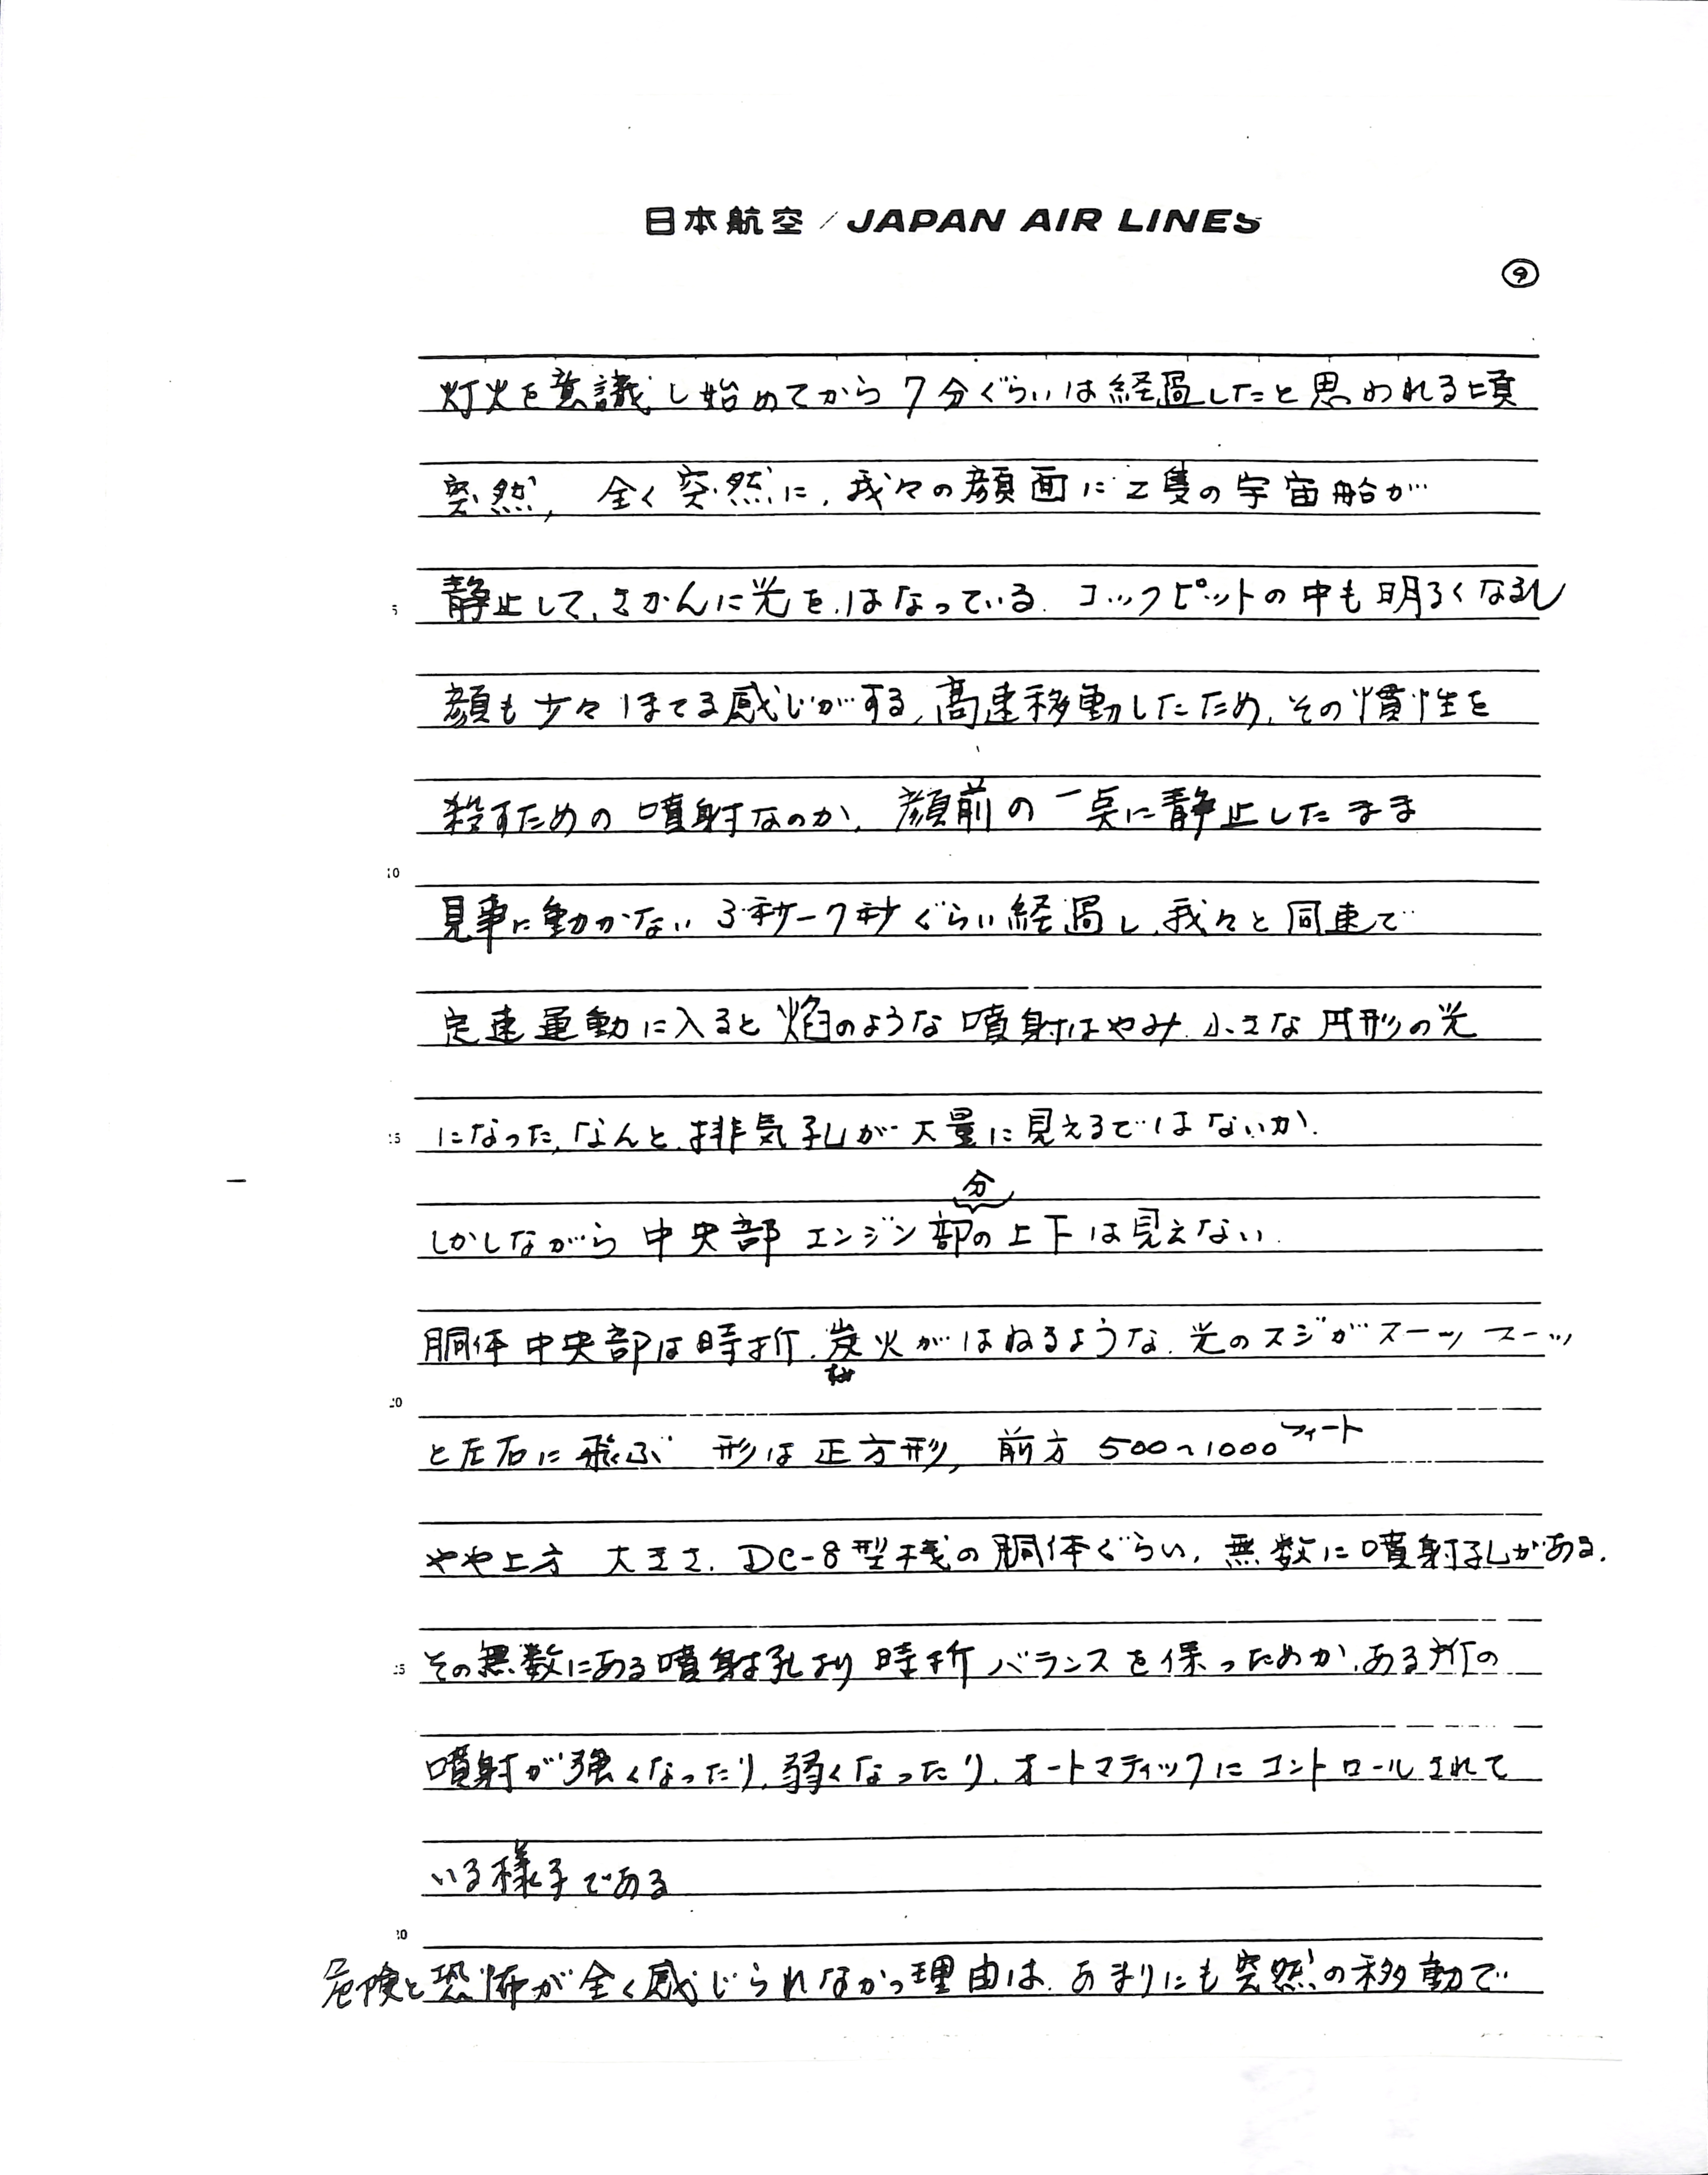 日本航空/JAPAN AIR LINES
⑨
灯火を意識し始めてから7分ぐらいは経過したと思われる頃
突然, 全く突然に、我々の顔面に2隻の宇宙船が
5 静止して、さかんに光を、はなっている. コックピットの中も明るくなるし
顔も少々ほてる感じがする、高速移動したため、その慣性を
殺すための噴射なのか、顔前の一点に静止したまま
10
見事に動かない 3秒ー7秒ぐらい経過し、我々と同速で
定速運動に入ると焰のような噴射はやみ、小さな円形の光
15 になった、なんと、排気孔が大量に見えるではないか.
分
しかしながら中央部 エンジン部の上下は見えない.
胴体中央部は時折、炭火がはねるような、光のスジがスーッ スーッ
20
と左右に飛ぶ 形は正方形, 前方 500~1000フィート
やや上方 大きさ、DC-8型機の胴体ぐらい、無数に噴射孔がある.
25 その無数にある噴射孔より時折バランスを保ったためか、ある所の
噴射が強くなったり、弱くなったり、オートマティックにコントロールされて
いる様子である
30
危険と恐怖が全く感じられなかっ理由は、あまりにも突然の移動で